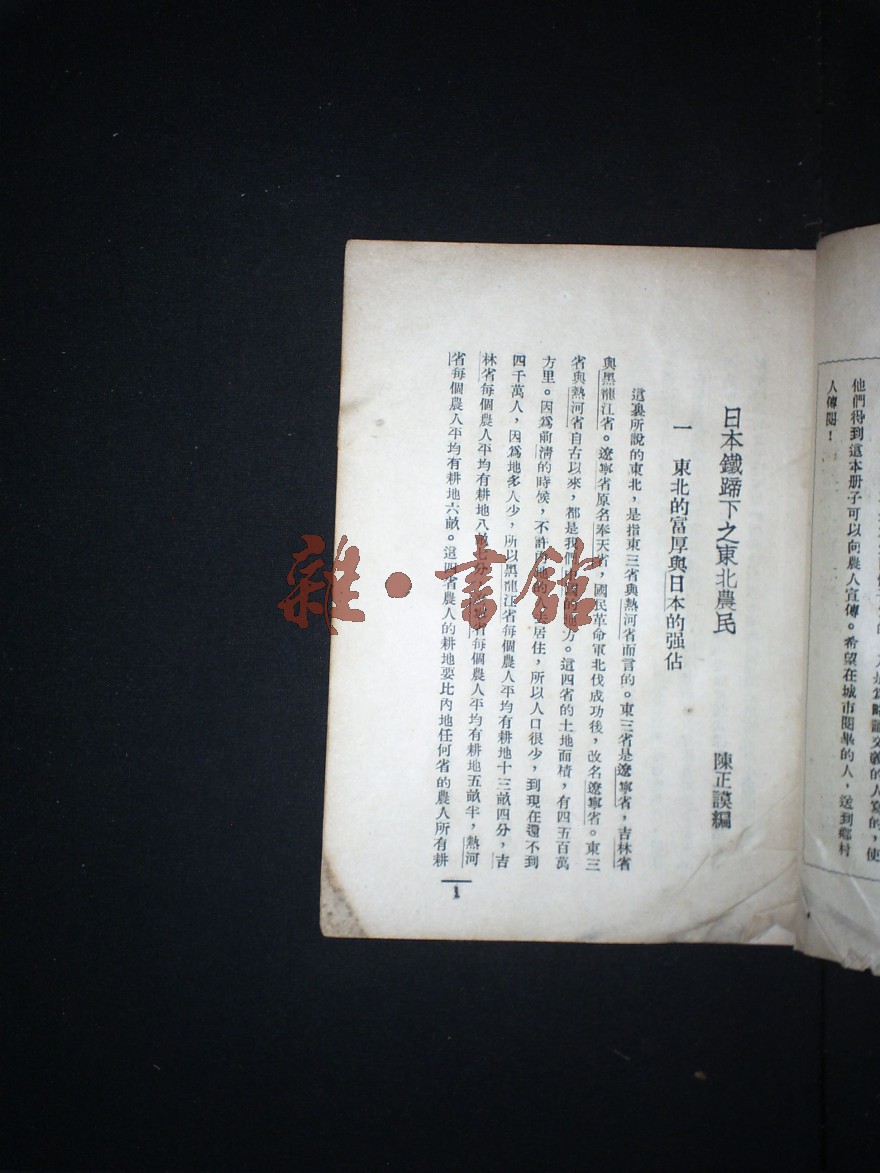 他們得到這本册子可以向農人宣傳。希望在城市閱畢的人，送到鄉村
人傳閱！
日本鐵蹄下之東北農民
陳正謨編
一　東北的富厚與日本的强佔
這裏所說的東北，是指東三省與熱河省而言的。東三省是遼寧省，吉林省
與黑龍江省。遼寧省原名奉天省，國民革命軍北伐成功後，改名遼寧省。東三
省與熱河省自古以來，都是我們方。這四省的土地面積，有四五百萬
方里。因爲前淸的時候，不許居住，所以人口很少，到現在還不到
四千萬人，因爲地多人少，所以黑龍江省每個農人平均有耕地十三畝四分，吉
林省每個農人平均有耕地八畝七分，省每個農人平均有耕地五畝半，熱河
省每個農人平均有耕地六畝。這四省農人的耕地要比內地任何省的農人所有耕
1
雜·書館